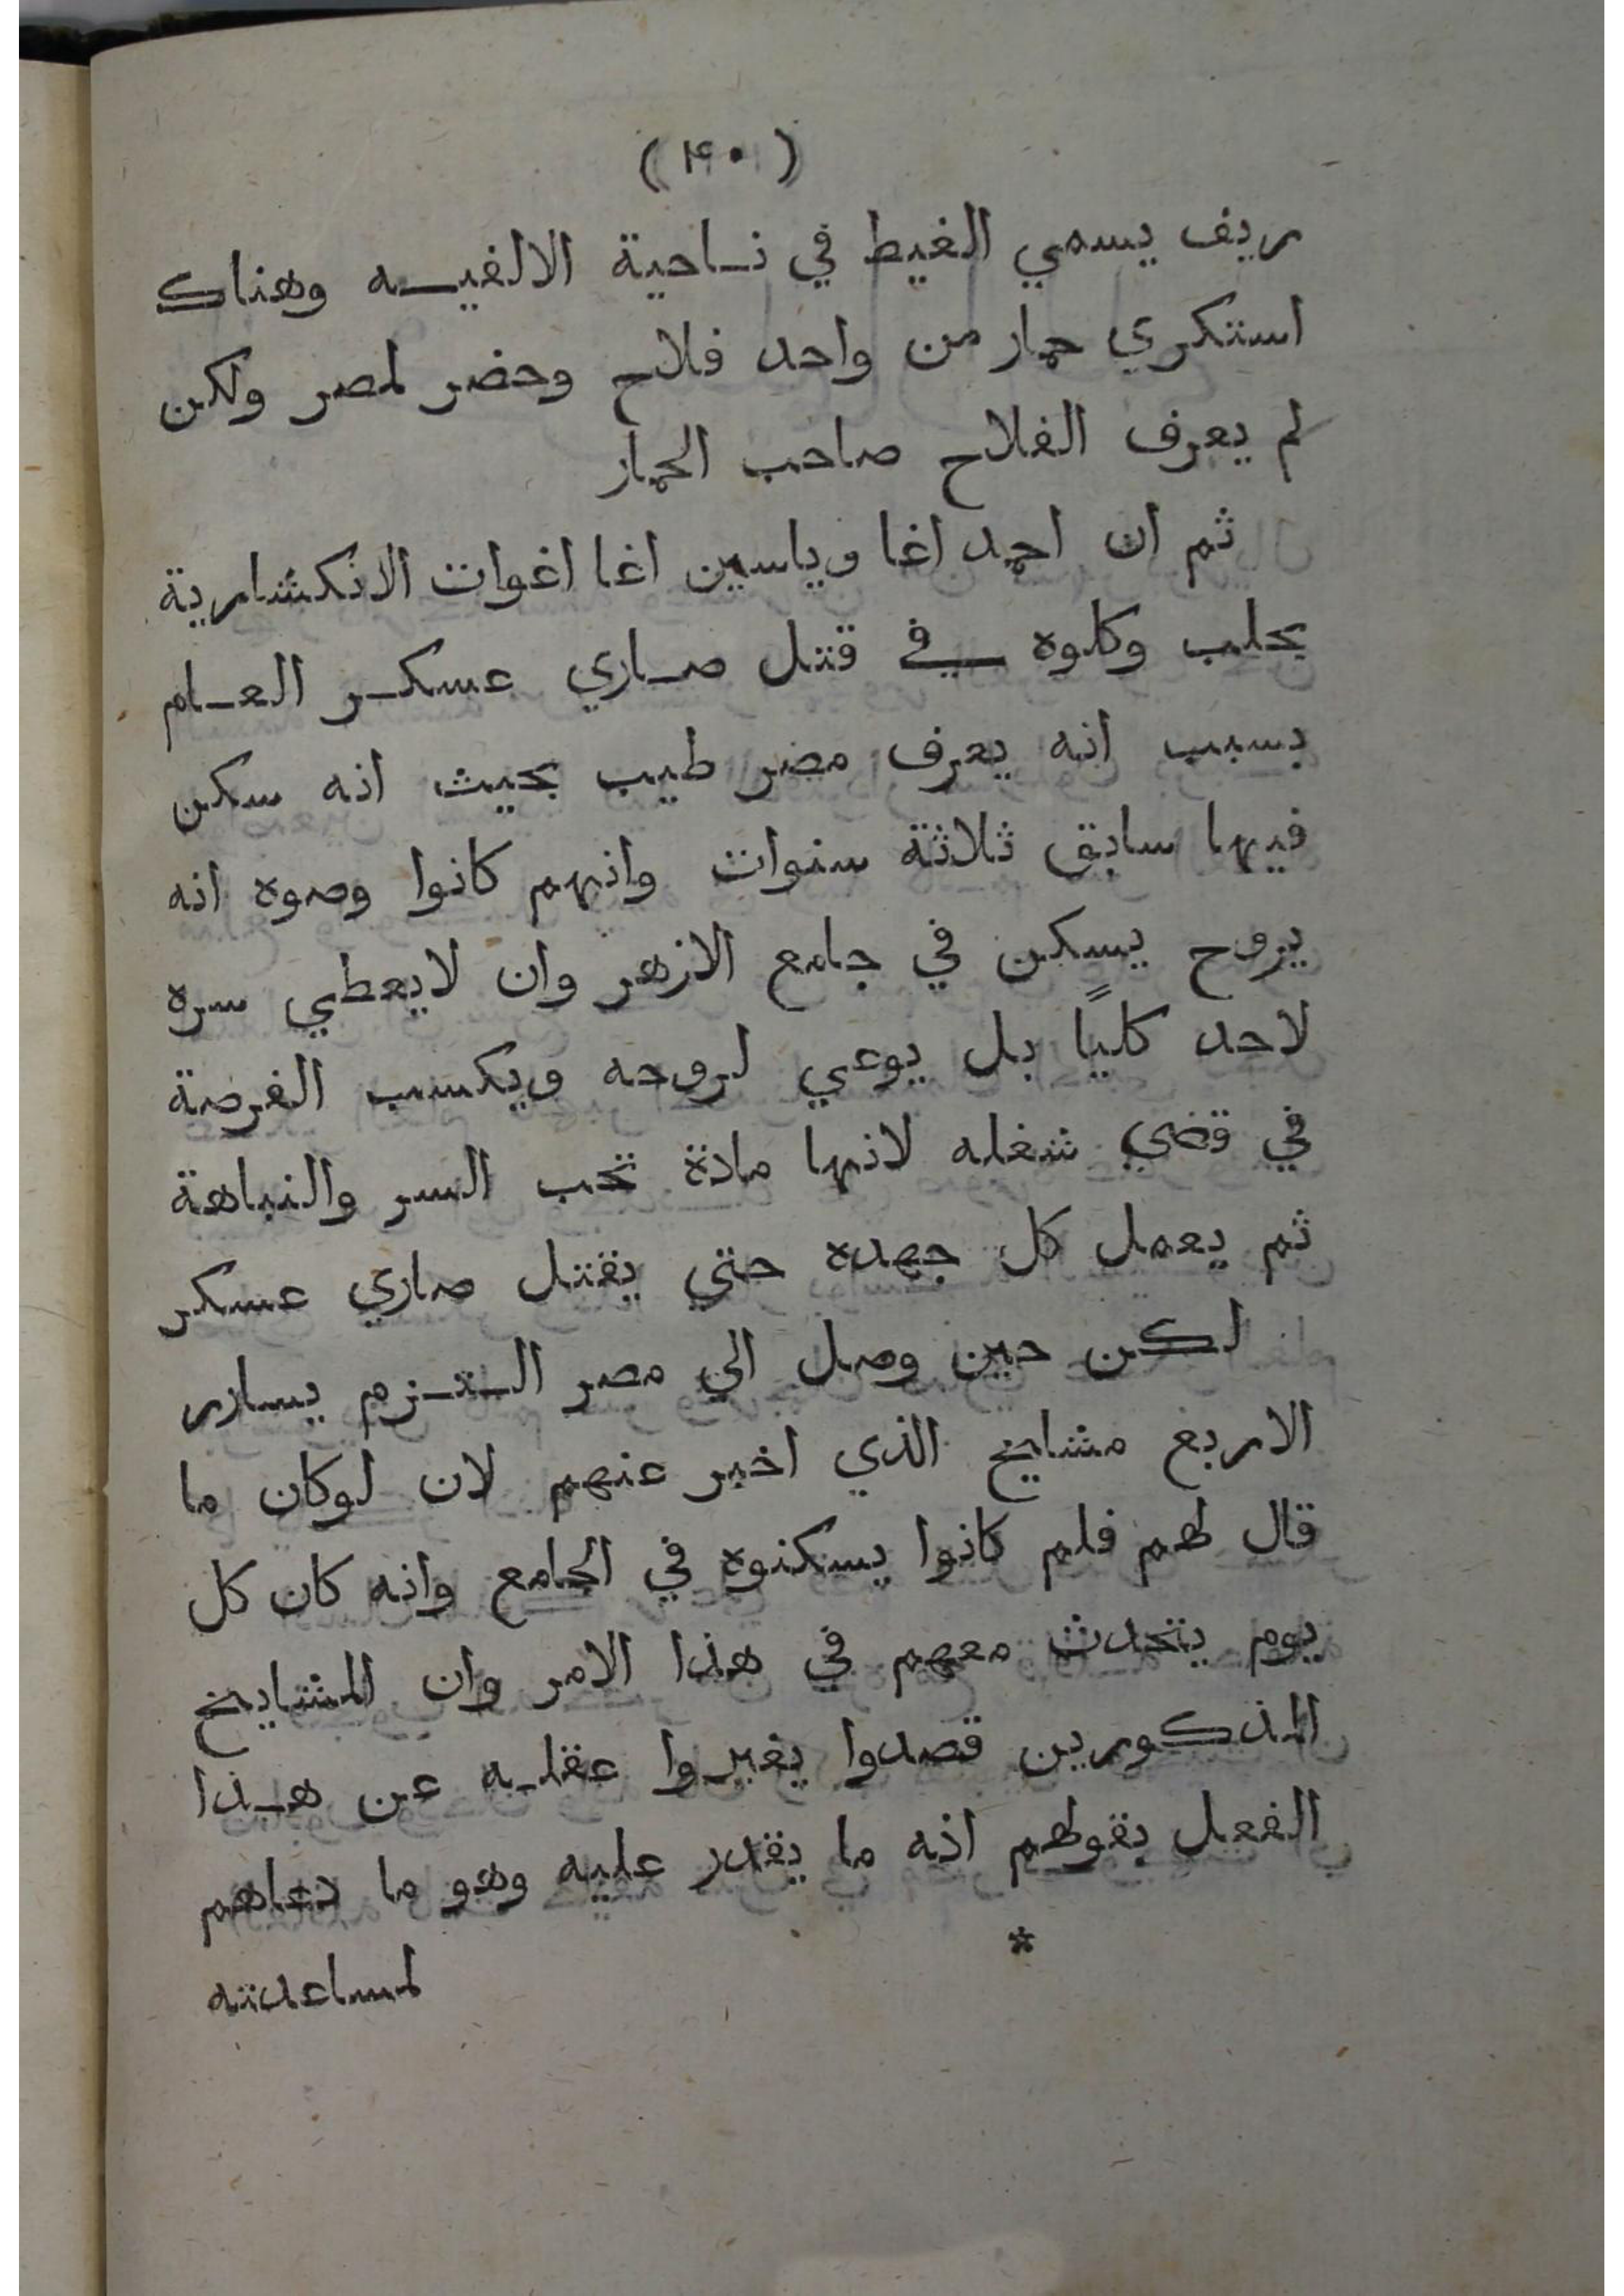 (٤٠)
ريف يسمي الغيط في ناحية الالفيه وهناك
استكري حمار من واحد فلاح وحضر لمصر ولكن
لم يعرف الفلاح صاحب الحمار
ثم ان احمد اغا وياسين اغا اغوات الانكشارية
بحلب وكلوه في قتل صاري عسكر العام
بسبب انه يعرف مصر طيب بحيث انه سكن
فيها سابق ثلاثة سنوات وانهم كانوا وصوه انه
يروح يسكن في جامع الازهر وان لايعطي سره
لاحد كليًا بل يوعي لروحه ويكسب الفرصة
في قضي شغله لانها مادة تحب السر والنباهة
ثم يعمل كل جهده حتي يقتل صاري عسكر
لكن حين وصل الي مصر التزم يسارر
الاربع مشايخ الذي اخبر عنهم لان لوكان ما
قال لهم فلم كانوا يسكنوه في الجامع وانه كان كل
يوم يتحدث معهم في هذا الامر وان المشايخ
المذكورين قصدوا يغيروا عقله عن هذا
الفعل بقولهم انه ما يقدر عليه وهو ما دعاهم
*
لمساعدته